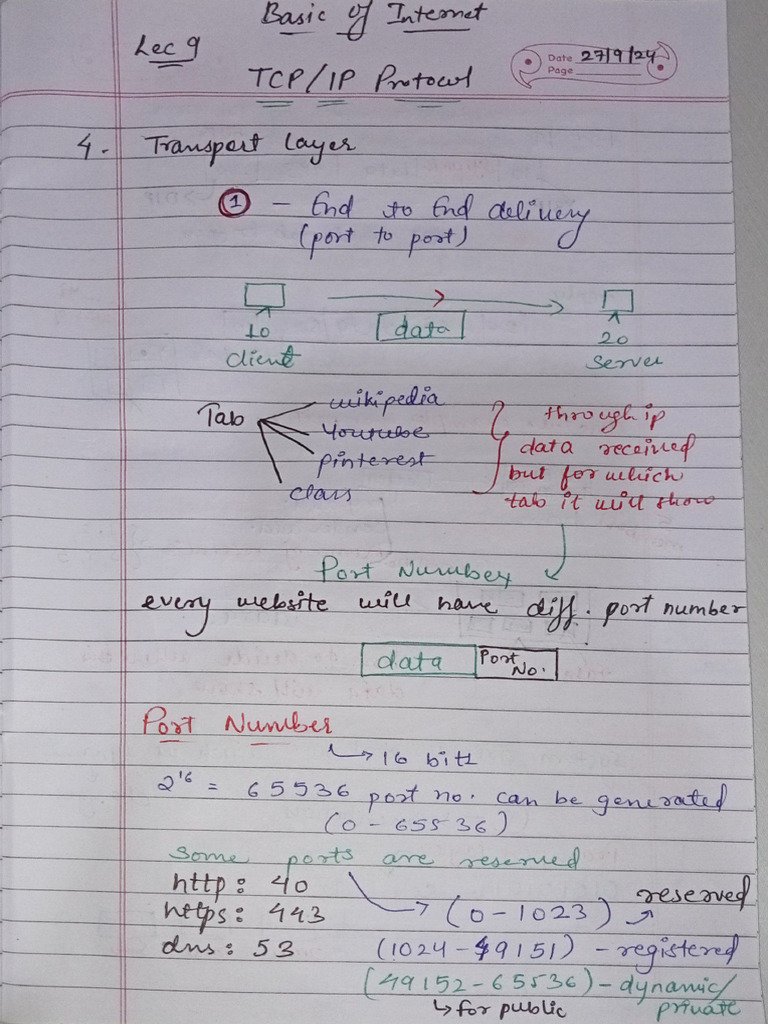 Basic of Internet
Lec 9
Date 27/9/24
Page
TCP/IP Protocol
4. Transport Layer
① - End to End delivery
(port to port)
10 data 20
client server
Tab
wikipedia
Youtube
pinterest
class
through ip
data received
but for which
tab it will show
Port Number
every website will have diff. port number
data Port No.
Port Number
↳ 16 bits
2^16 = 65536 port no. can be generated
(0 - 65536)
Some ports are reserved
http: 40
https: 443
dns: 53
(0 - 1023) reserved
(1024 - 49151) - registered
(49152 - 65536) - dynamic/
private
↳ for public